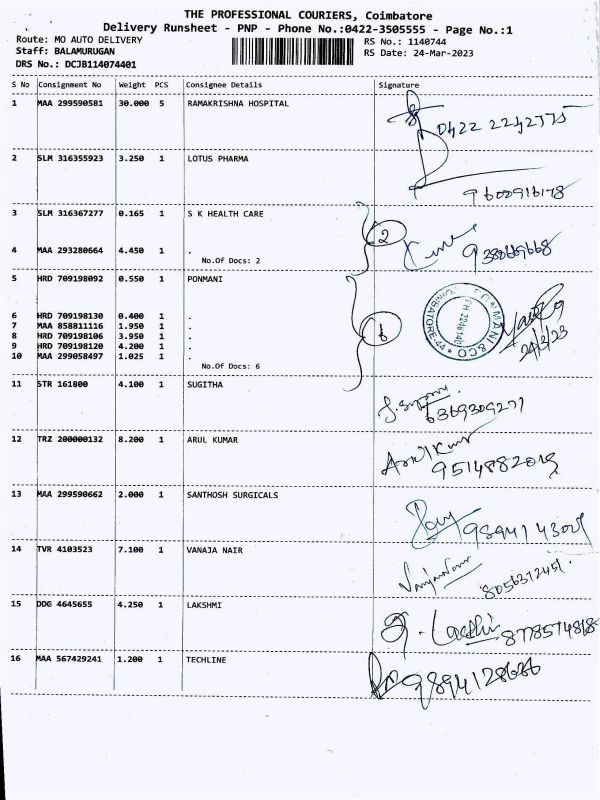 THE PROFESSIONAL COURIERS, Coimbatore
Delivery Runsheet - PNP - Phone No.:0422-3505555 - Page No.:1
Route: MO AUTO DELIVERY RS No.: 1140744
Staff: BALAMURUGAN RS Date: 24-Mar-2023
DRS No.: DCJB114074401
S No Consignment No Weight PCS Consignee Details Signature
1 MAA 299590581 30.000 5 RAMAKRISHNA HOSPITAL
0422 2242775
2 SLM 316355923 3.250 1 LOTUS PHARMA
9600916178
3 SLM 316367277 0.165 1 S K HEALTH CARE
2
4 MAA 293280664 4.450 1 .
No.Of Docs: 2
5 HRD 709198092 0.550 1 PONMANI
6 HRD 709198130 0.400 1 .
7 MAA 858811116 1.950 1 .
8 HRD 709198106 3.950 1 .
9 HRD 709198120 4.200 1 .
10 MAA 299058497 1.025 1 .
No.Of Docs: 6
6
PONMANI & CO
COIMBATORE-44
24/3/23
11 STR 161800 4.100 1 SUGITHA
6369309277
12 TRZ 200000132 8.200 1 ARUL KUMAR
Arul Kumar
13 MAA 299590662 2.000 1 SANTHOSH SURGICALS
14 TVR 4103523 7.100 1 VANAJA NAIR
8056312451.
15 DDG 4645655 4.250 1 LAKSHMI
8778574818
16 MAA 567429241 1.200 1 TECHLINE
9894128686